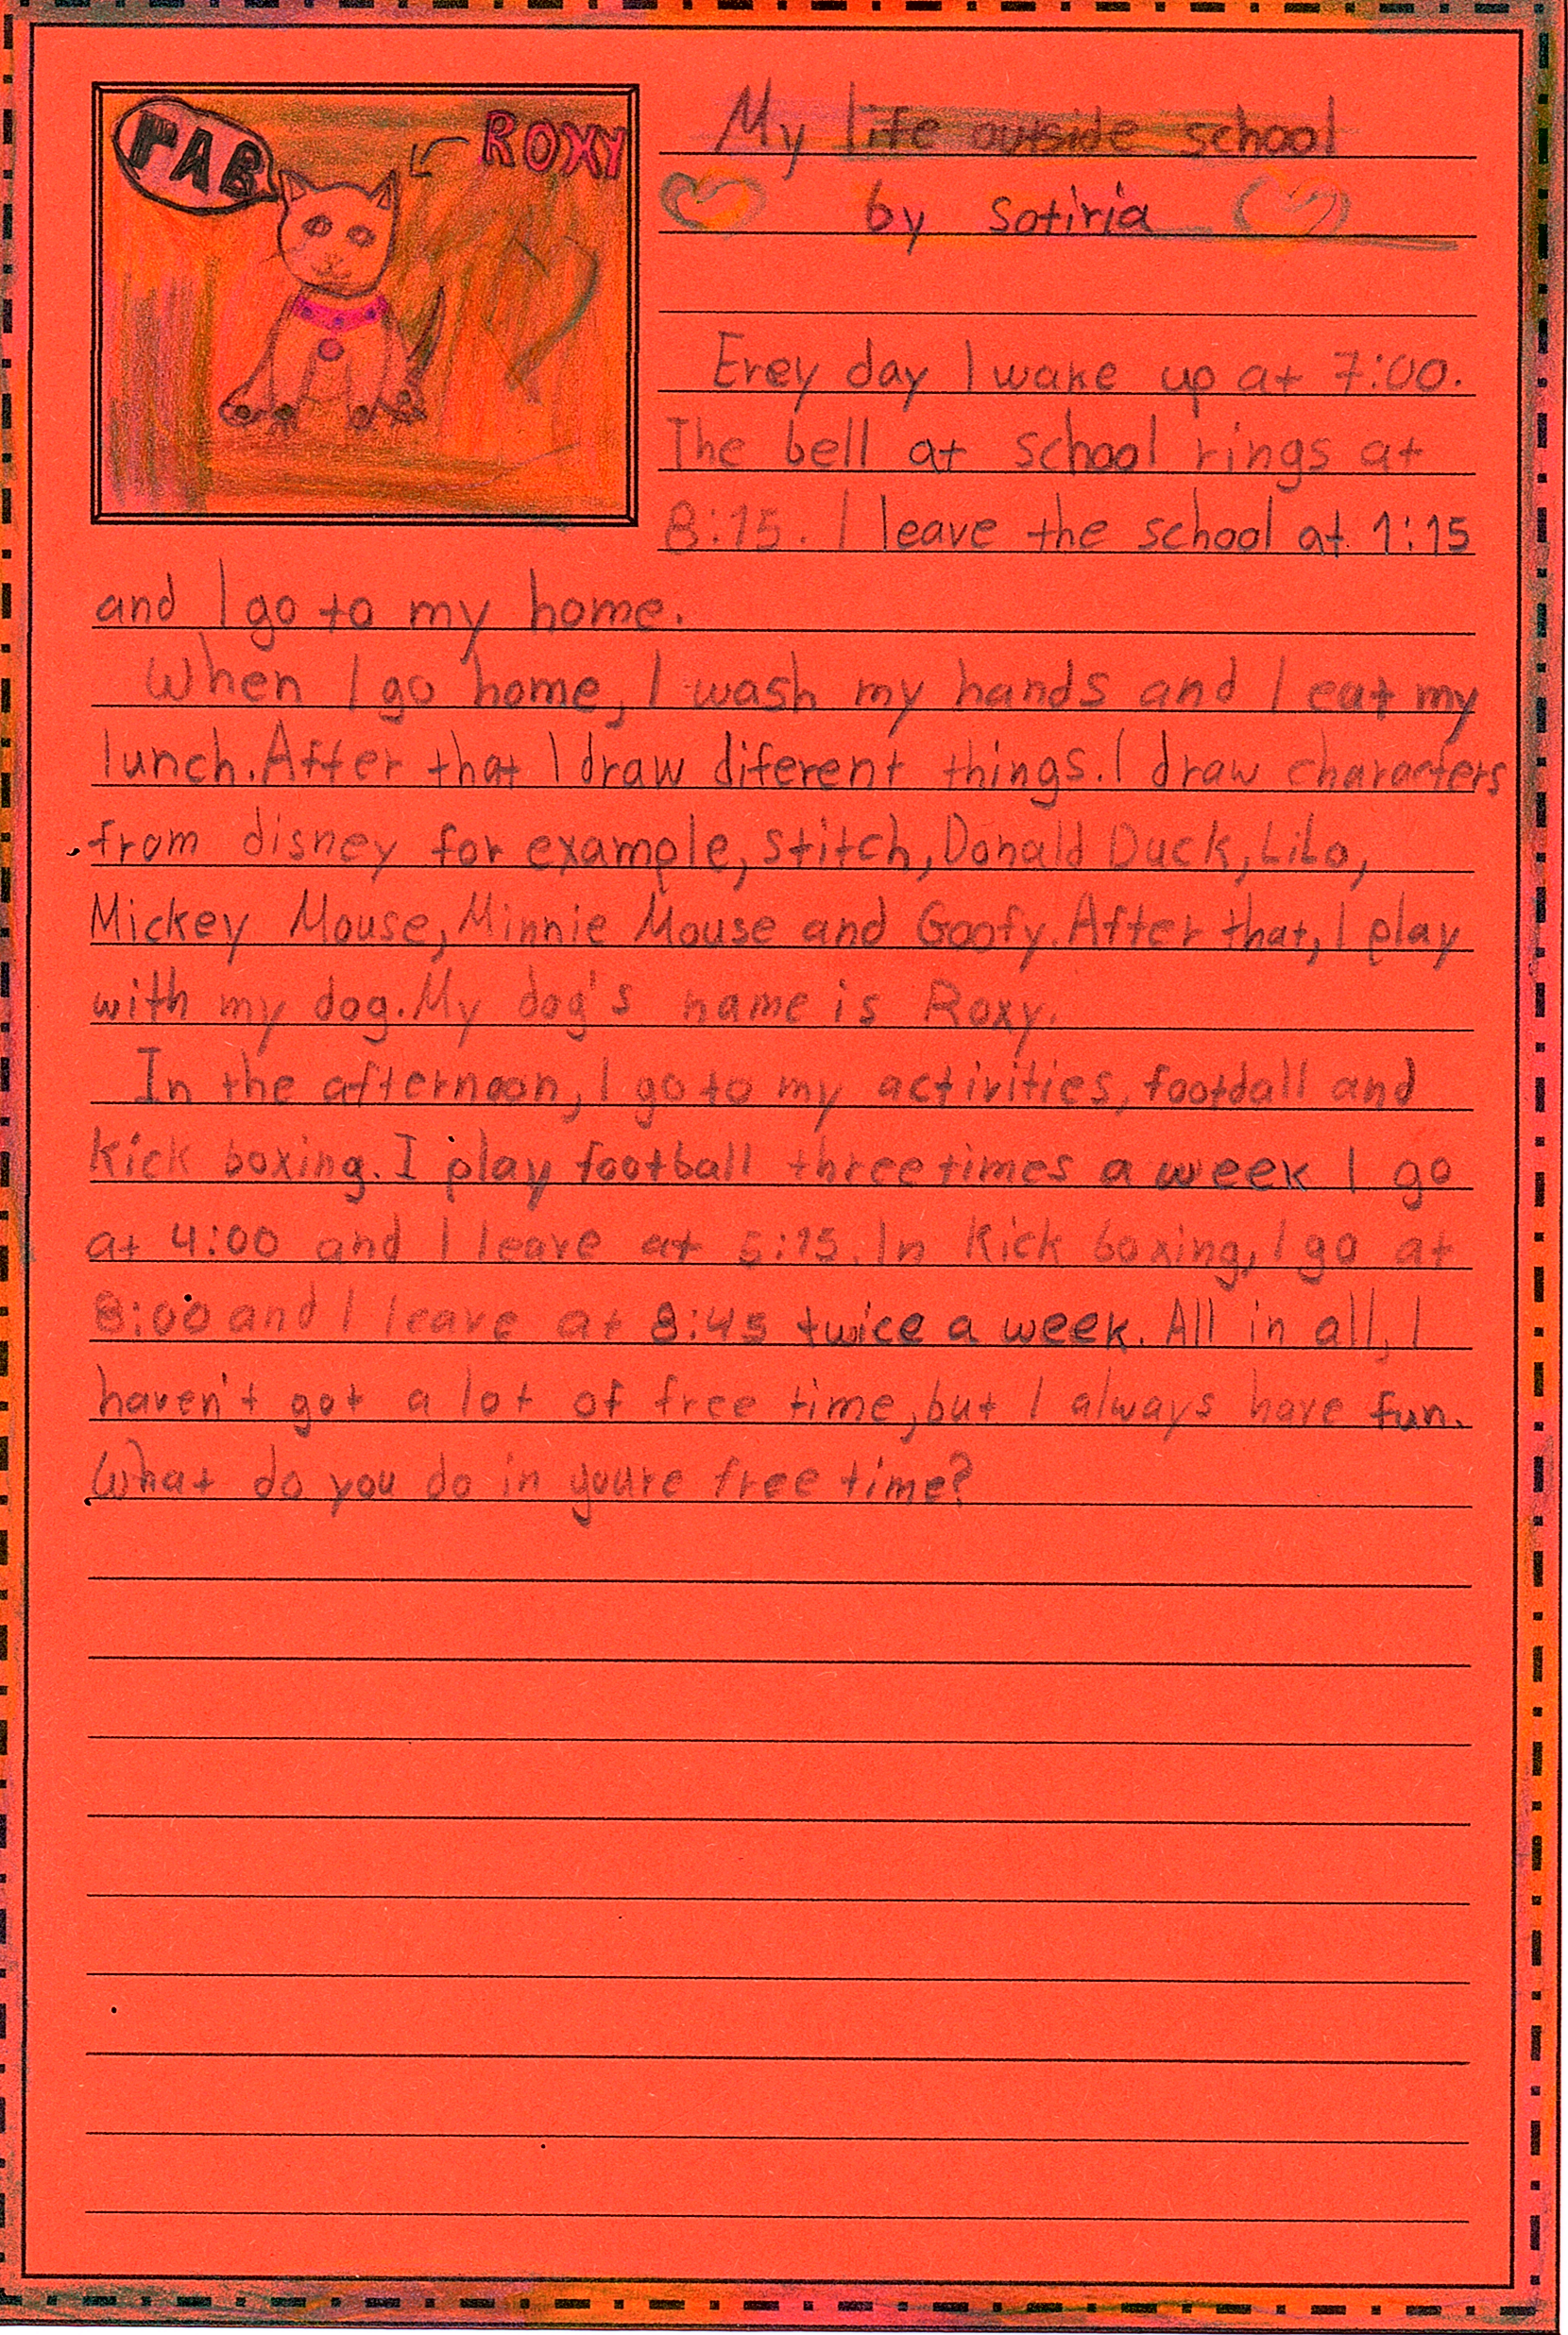 ΓΑΒ
ROXY
My life outside school
by sotiria
Erey day I wake up at 7:00.
The bell at school rings at
8:15. I leave the school at 1:15
and I go to my home.
When I go home, I wash my hands and I eat my
lunch. After that I draw diferent things. I draw characters
from disney for example, stitch, Donald Duck, Lilo,
Mickey Mouse, Minnie Mouse and Goofy. After that, I play
with my dog. My dog's name is Roxy.
In the afternoon, I go to my activities, footdall and
kick boxing. I play football three times a week I go
at 4:00 and I leave at 5:15. In kick boxing, I go at
8:00 and I leave at 8:45 twice a week. All in all, I
haven't got a lot of free time, but I always have fun.
What do you do in youre free time?